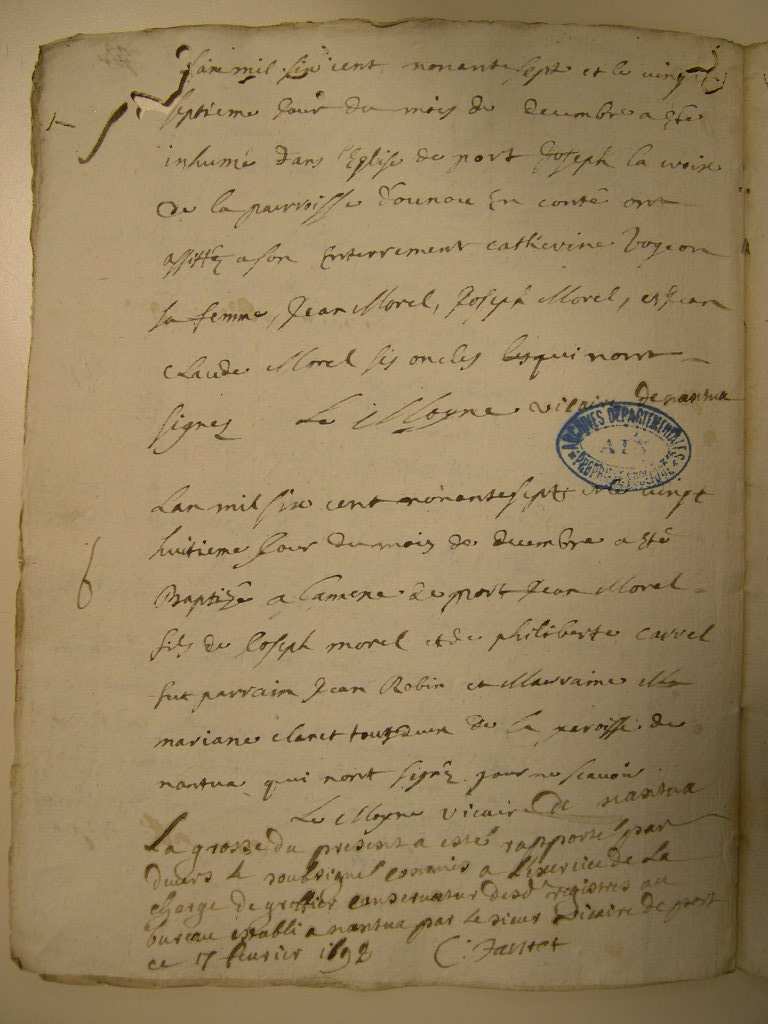 Lan mil six cent nonante sept et le vingt
septieme Jour du mois de decembre a Eté
inhumé dans l'Eglise de port Joseph la croix
de la parroisse En conté ont
assisté a son Enterrement catherine
sa femme, Jean Morel, Joseph Morel, et Jean
Claude Morel ses oncles lesqui nont
signez Le Moyne vicaire de nantua
ARCHIVES DEPARTEMENTALES
AIN
Lan mil six cent nonante sept et le vingt
6 huitieme Jour du mois de decembre a Eté
Baptizé a de port Jean Morel
fils de Joseph morel et de philiberte carrel
fut parrain Jean Robin et Marraine
mariane claret tous deux de la paroisse de
nantua qui nont signé pour ne scavoir
Le Moyne vicaire de nantua
La grosse du present a esté rapporteé par
devers le soubsigné commis a l'exercice de La
charge de greffier conservateur desd registres au
bureau establi a nantua par le sieur vicaire de port
ce 17 fevrier 1698